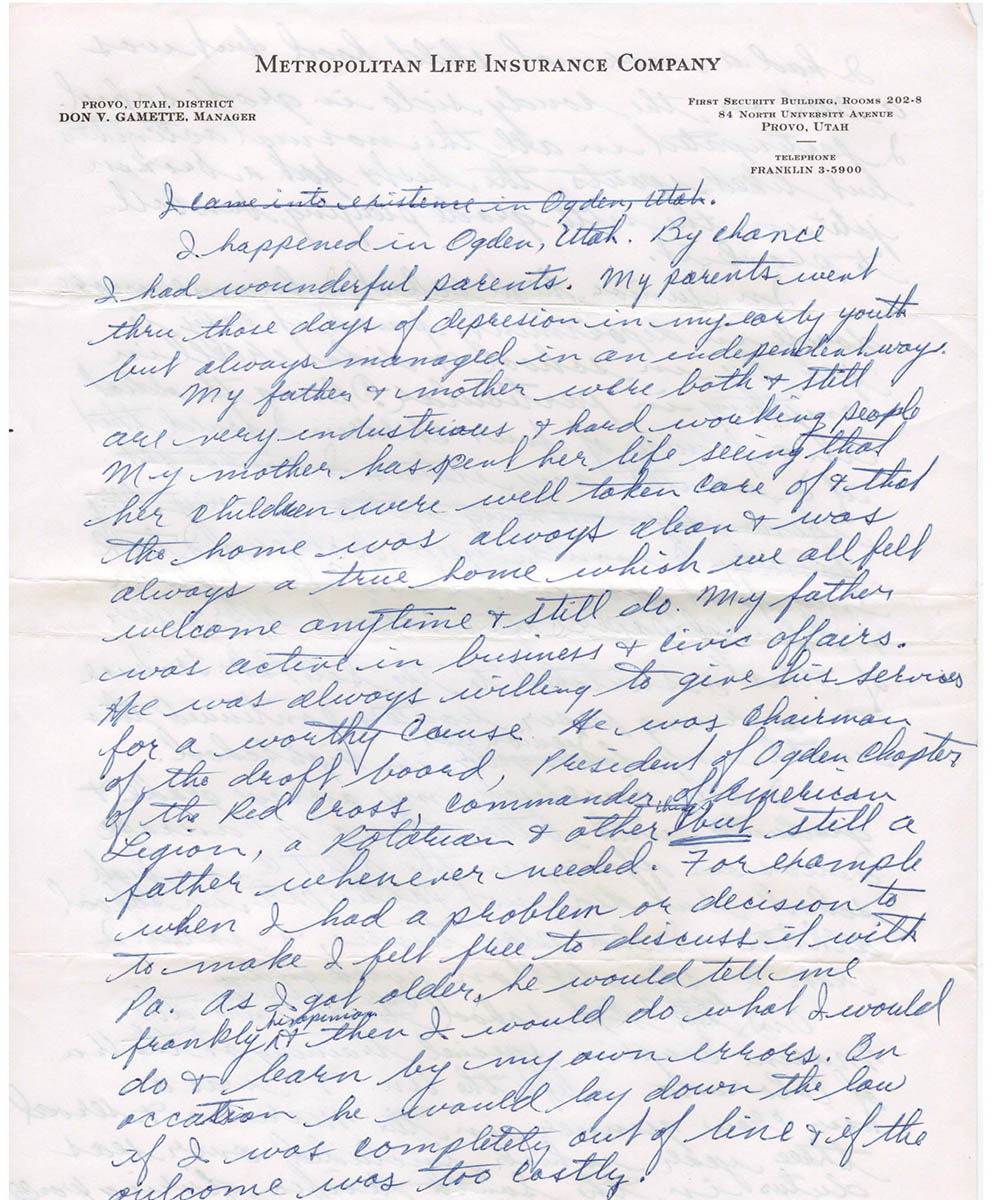 METROPOLITAN LIFE INSURANCE COMPANY
PROVO, UTAH, DISTRICT
DON V. GAMETTE, MANAGER
FIRST SECURITY BUILDING, ROOMS 202-8
84 NORTH UNIVERSITY AVENUE
PROVO, UTAH
TELEPHONE
FRANKLIN 3-5900
I came into existence in Ogden, Utah.
I happened in Ogden, Utah. By chance
I had wounderful parents. My parents went
thru those days of depresion in my early youth
but always managed in an independent way.
My father & mother were both & still
are very industrious & hard working people
My mother has spent her life seeing that
her children were well taken care of & that
the home was always clean & was
always a true home which we all felt
welcome anytime & still do. My father
was active in business & civic affairs.
He was always willing to give his services
for a worthy cause. He was Chairman
of the draft board, President of Ogden Chapter
of the Red Cross, commander of American
Legion, a Rotarian & other things but still a
father whenever needed. For example
when I had a problem or decision to
to make I felt free to discuss it with
Pa. As I got older, he would tell me
frankly his opinion & then I would do what I would
do & learn by my own errors. On
occasion he would lay down the law
if I was completely out of line & if the
outcome was too costly.